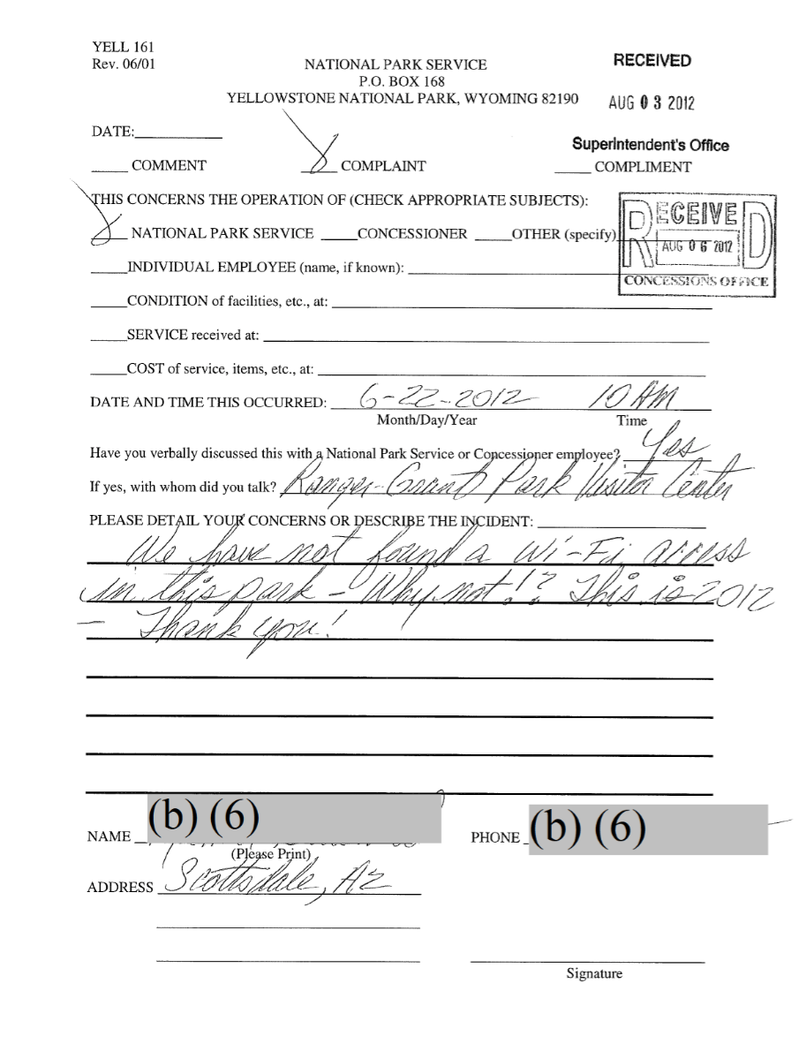 YELL 161
Rev. 06/01
NATIONAL PARK SERVICE
P.O. BOX 168
YELLOWSTONE NATIONAL PARK, WYOMING 82190
RECEIVED
AUG 03 2012
Superintendent's Office
DATE:
COMMENT COMPLAINT COMPLIMENT
THIS CONCERNS THE OPERATION OF (CHECK APPROPRIATE SUBJECTS):
NATIONAL PARK SERVICE CONCESSIONER OTHER (specify)
RECEIVED
AUG 06 2012
CONCESSIONS OFFICE
INDIVIDUAL EMPLOYEE (name, if known):
CONDITION of facilities, etc., at:
SERVICE received at:
COST of service, items, etc., at:
DATE AND TIME THIS OCCURRED: 6-22-2012 10 AM
Month/Day/Year Time
Have you verbally discussed this with a National Park Service or Concessioner employee? Yes
If yes, with whom did you talk? Ranger-Grant Park Visitor Center
PLEASE DETAIL YOUR CONCERNS OR DESCRIBE THE INCIDENT:
We have not found a Wi-Fi access
in this park - Why not!? This is 2012
- Thank you!
NAME (b) (6) PHONE (b) (6)
(Please Print)
ADDRESS Scottsdale, AZ
Signature